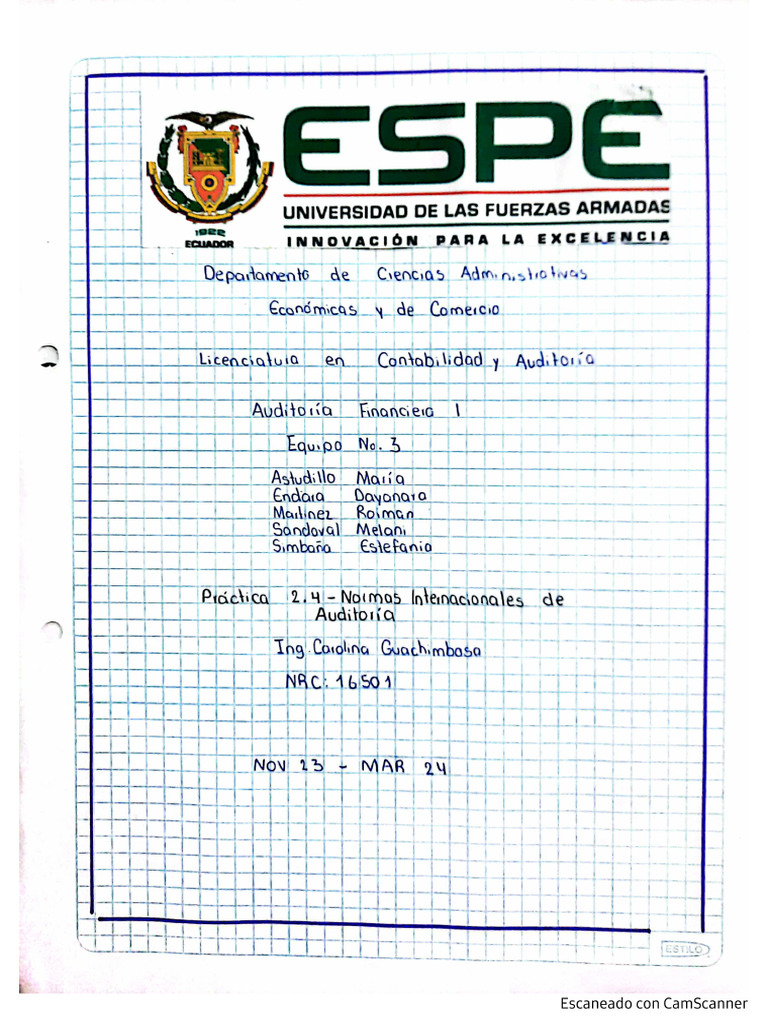 ESPE
UNIVERSIDAD DE LAS FUERZAS ARMADAS
INNOVACIÓN PARA LA EXCELENCIA
1922
ECUADOR
Departamento de Ciencias Administrativas
Económicas y de Comercio
Licenciatura en Contabilidad y Auditoría
Auditoría Financiera 1
Equipo No. 3
Astudillo María
Endara Dayanara
Martinez Roiman
Sandoval Melani
Simbaña Estefania
Práctica 2.4 - Normas Internacionales de
Auditoría
Ing. Carolina Guachimbosa
NRC: 16501
NOV 23 - MAR 24
ESTILO
Escaneado con CamScanner